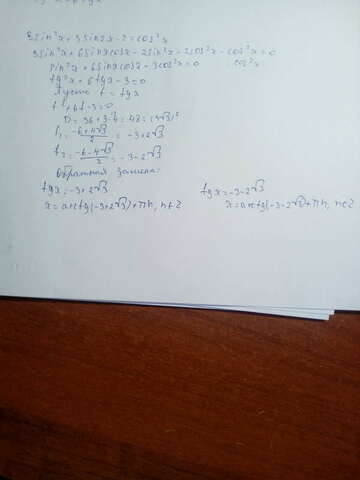 3sin²x+3sin2x-2=cos²x
3sin²x+6sinxcosx-2sin²x-2cos²x-cos²x=0
sin²x+6sinxcosx-3cos²x=0 cos²x
tg²x+6tgx-3=0
Пусть t=tgx
t²+6t-3=0
D=36+3·4=48=(4√3)²
t₁=-6+4√3/2=-3+2√3
t₂=-6-4√3/2=-3-2√3
Обратная замена:
tgx=-3+2√3 tgx=-3-2√3
x=arctg(-3+2√3)+πn, n∈Z x=arctg(-3-2√3)+πn, n∈Z